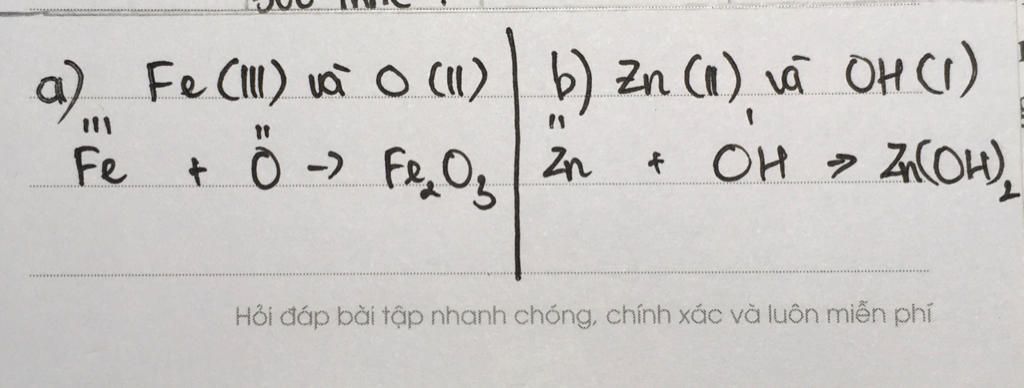 a) Fe (III) và O (II)
III II
Fe + O -> Fe₂O₃
b) Zn (II) và OH (I)
II I
Zn + OH -> Zn(OH)₂
Hỏi đáp bài tập nhanh chóng, chính xác và luôn miễn phí